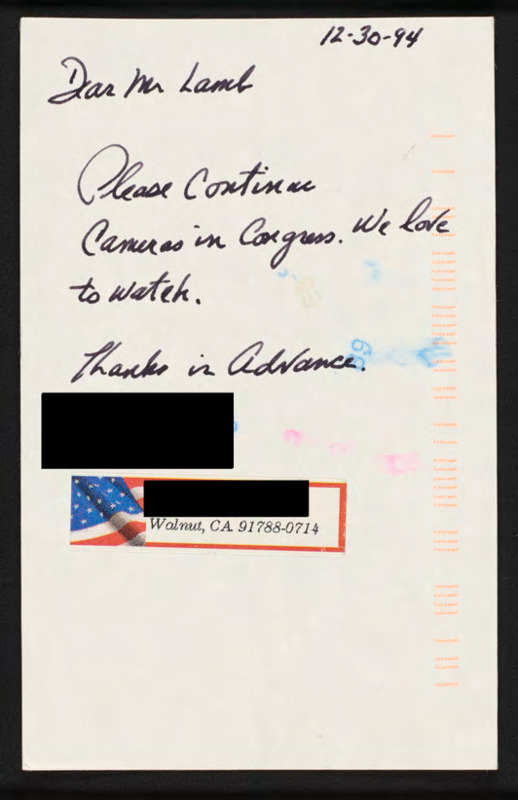 12-30-94
Dear Mr Lamb
Please Continue
Cameras in Congress. We love
to watch.
Thanks in Advance.
Walnut, CA 91788-0714